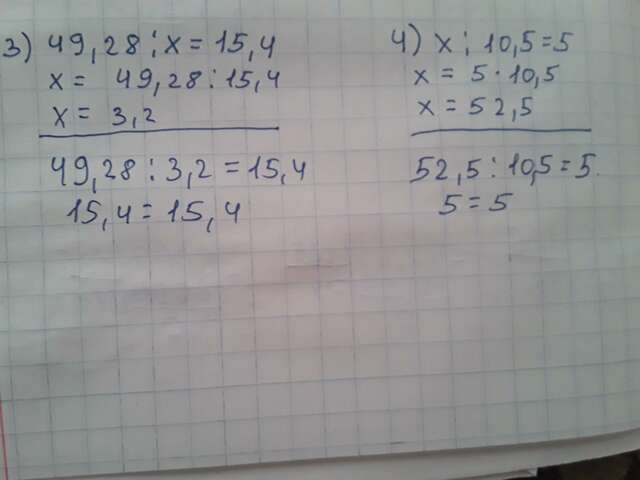 3) 49,28 : x = 15,4
x = 49,28 : 15,4
x = 3,2
49,28 : 3,2 = 15,4
15,4 = 15,4
4) x : 10,5 = 5
x = 5 · 10,5
x = 52,5
52,5 : 10,5 = 5.
5 = 5